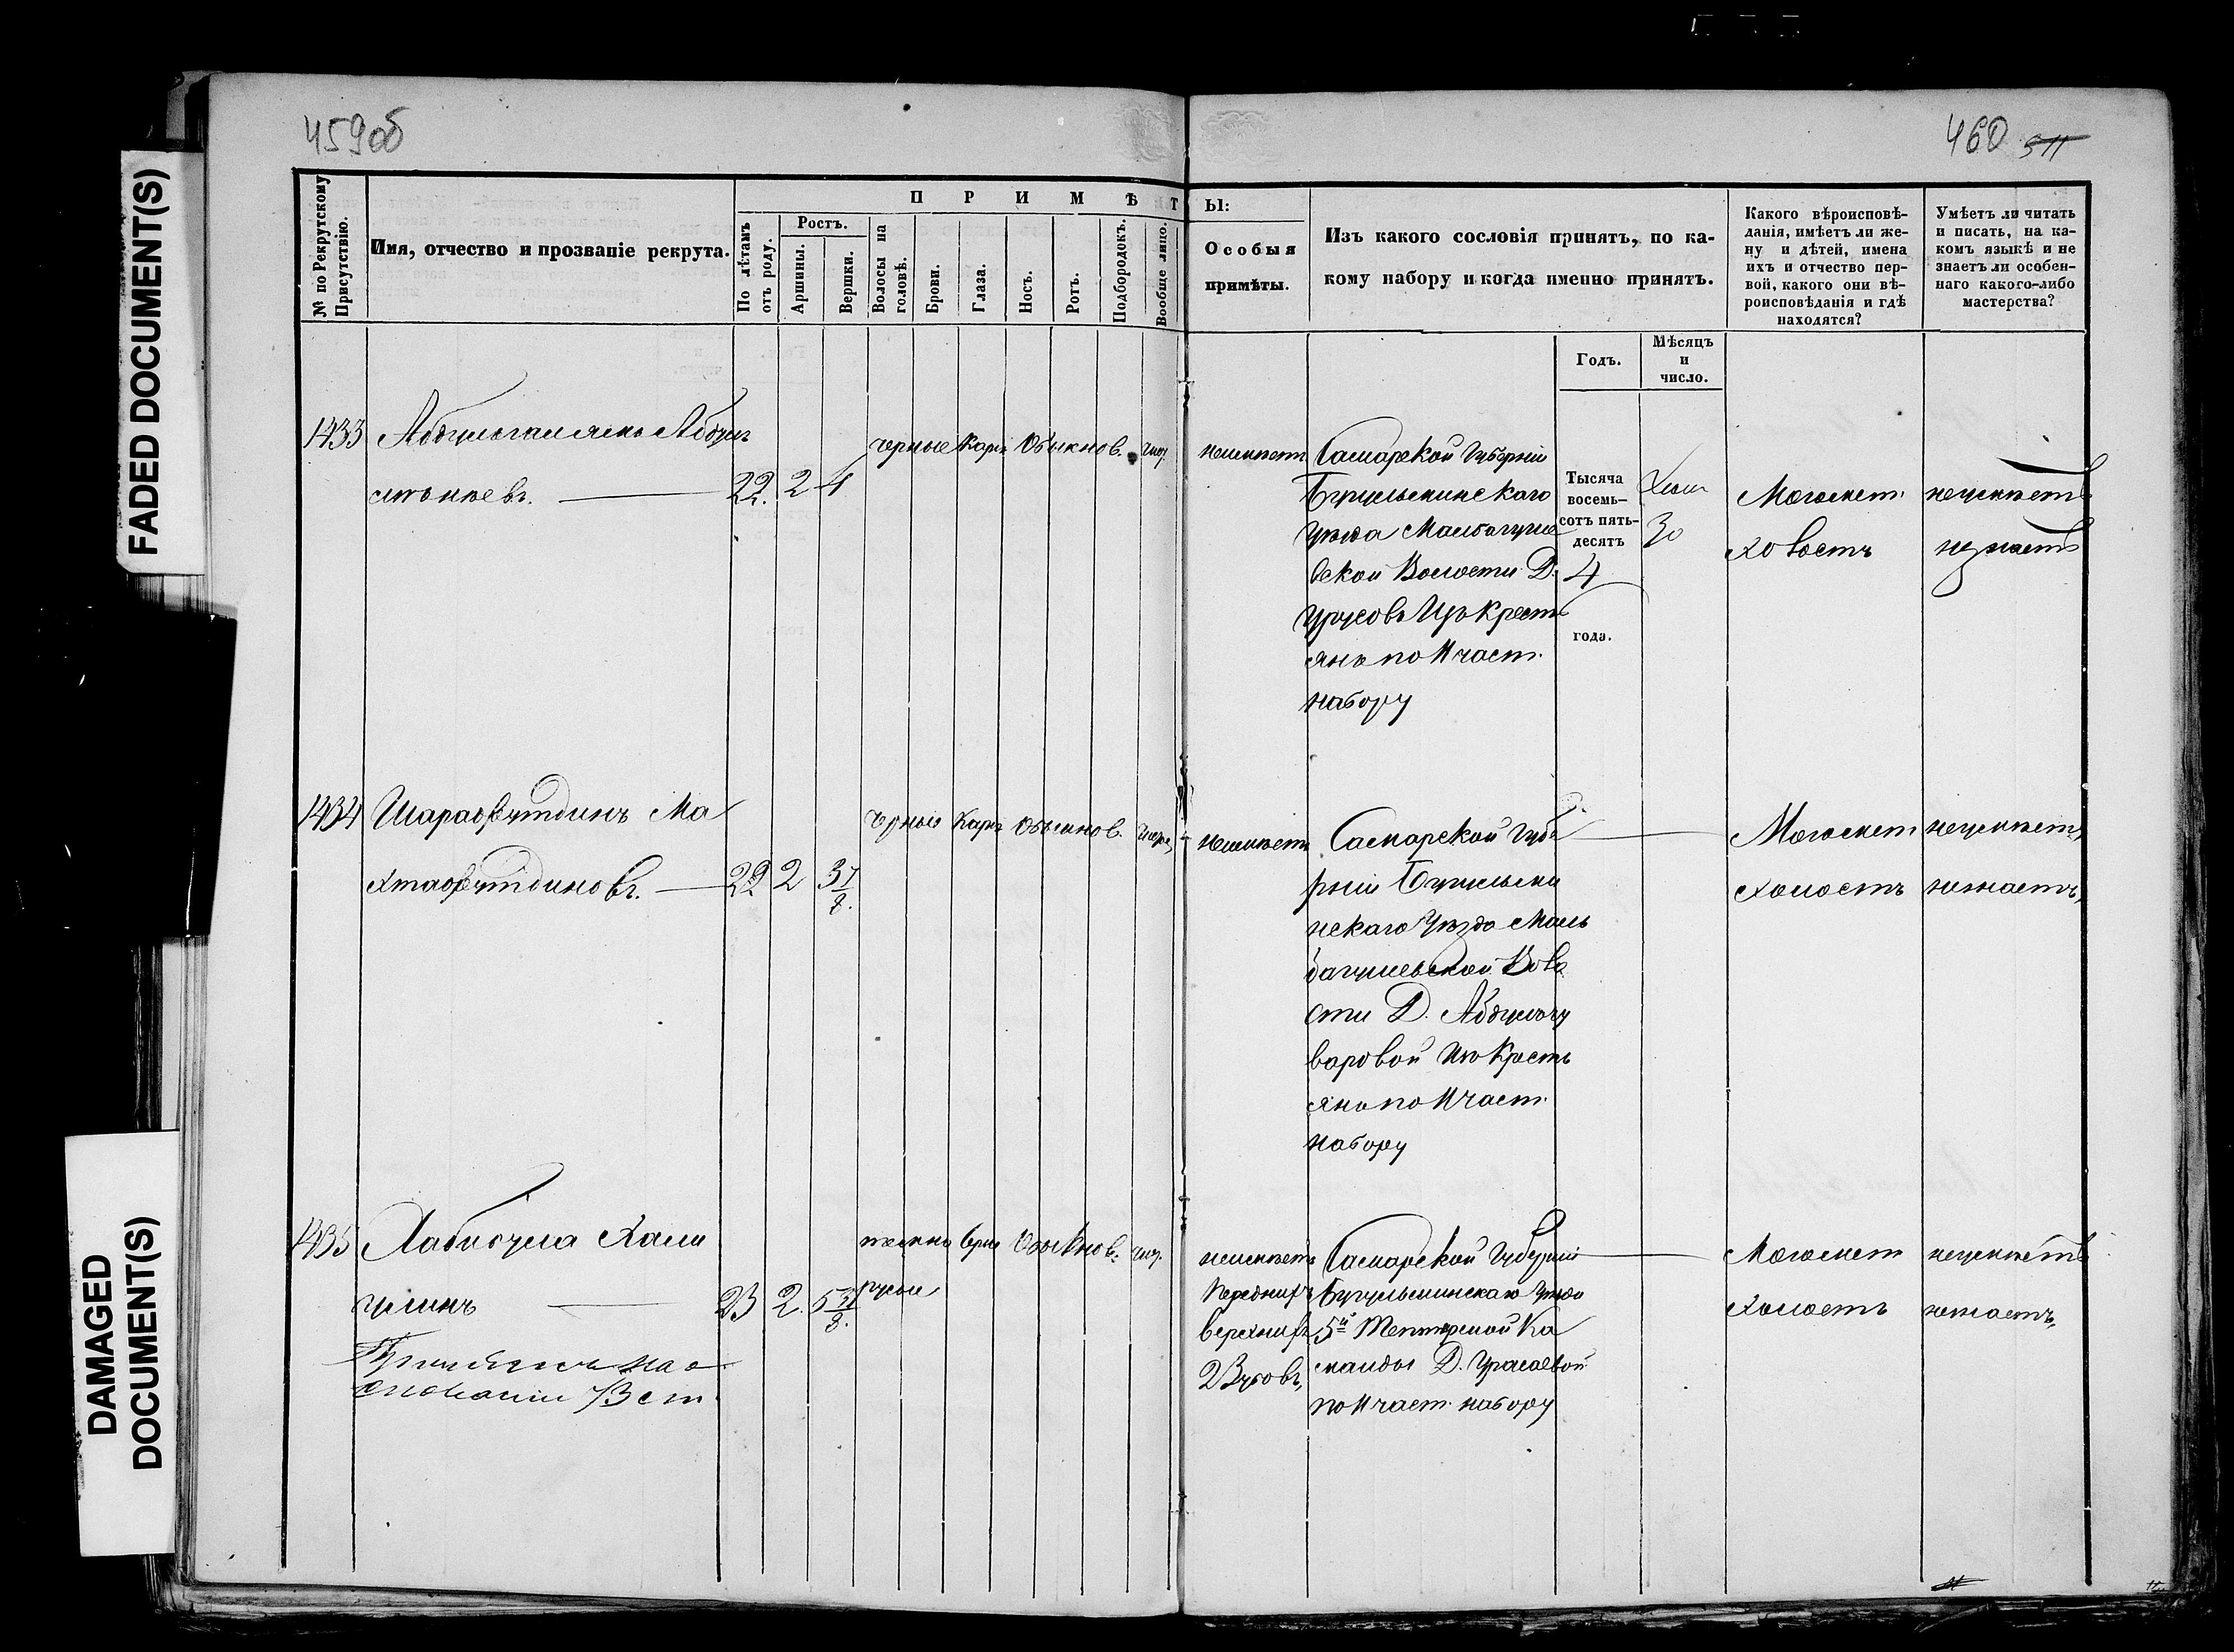 FADED DOCUMENT(S)
DAMAGED
DOCUMENT(S)
459об
460 511
№ по Рекрутскому
Присутствію.
Имя, отчество и прозваніе рекрута.
ПРИМѢТ
Ы:
По лѣтамъ
отъ роду.
Ростъ.
Аршины.
Вершки.
Волосы на
головѣ.
Брови.
Глаза.
Носъ.
Ротъ.
Подбородокъ.
Вообще лицо.
Особыя
примѣты.
Изъ какого сословія принятъ, по ка-
кому набору и когда именно принятъ.
Годъ.
Мѣсяцъ
и
число.
Какого вѣроисповѣ-
данія, имѣетъ ли же-
ну и дѣтей, имена
ихъ и отчество пер-
вой, какого они вѣ-
роисповѣданія и гдѣ
находятся?
Умѣетъ ли читать
и писать, на ка-
комъ языкѣ и не
знаетъ ли особен-
наго какого-либо
мастерства?
1433
22. 2 4
черные Каріе Обыкнов.
неимѣетъ
Самарской Губерніи
Бугульминскаго
уѣзда
ской Волости Д.
Урусовъ Изъ Кресть
янъ по II част.
набору
Тысяча
восемь-
сотъ пять-
десятъ
4
года.
30
Магомет.
холостъ
неумѣетъ
незнаетъ
1434 Шарафутдинъ Ма
хтафутдиновъ.
22 2 3 7/8.
черные Каріе Обыкнов.
неимѣетъ
Самарской Губе
рніи Бугульми
нскаго Уѣзда Маль
багушевской Воло
сти Д.
варовой Изъ Кресть
янъ по II част.
набору
Магомет
холостъ
неумѣетъ,
незнаетъ,
1435 Хали
улинъ
23 2. 5 7/8.
темно русые
Обыкнов.
неимѣетъ
переднихъ
верхнихъ
2 Зубовъ,
Самарской Губерніи
Бугульминскаго Уѣзда
5й Тептярской Ко
манды Д.
по II част. набору
Магомет
Холостъ
неумѣетъ
незнаетъ,